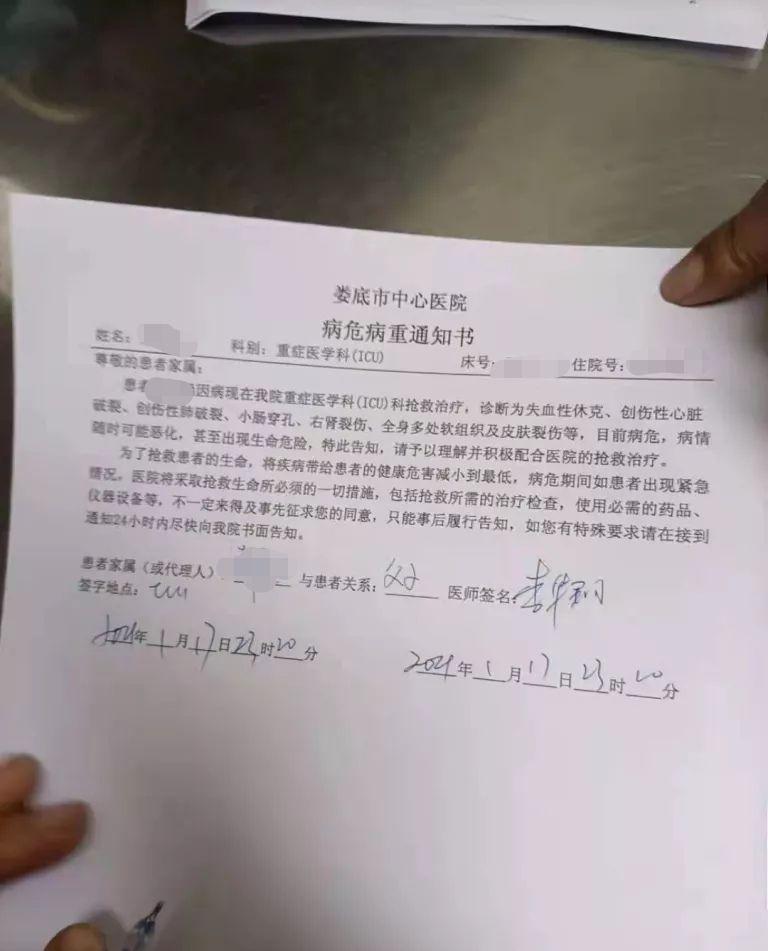 娄底市中心医院
病危病重通知书
姓名: 科别: 重症医学科(ICU) 床号: 住院号:
尊敬的患者家属:
患者 因病现在我院重症医学科(ICU)科抢救治疗，诊断为失血性休克、创伤性心脏
破裂、创伤性肺破裂、小肠穿孔、右肾裂伤、全身多处软组织及皮肤裂伤等，目前病危，病情
随时可能恶化，甚至出现生命危险，特此告知，请予以理解并积极配合医院的抢救治疗。
为了抢救患者的生命，将疾病带给患者的健康危害减小到最低，病危期间如患者出现紧急
情况，医院将采取抢救生命所必须的一切措施，包括抢救所需的治疗检查，使用必需的药品、
仪器设备等，不一定来得及事先征求您的同意，只能事后履行告知，如您有特殊要求请在接到
通知24小时内尽快向我院书面告知。
患者家属（或代理人） 与患者关系: 父子 医师签名:
签字地点: ICU
2021年1月17日23时20分 2021年1月17日23时20分